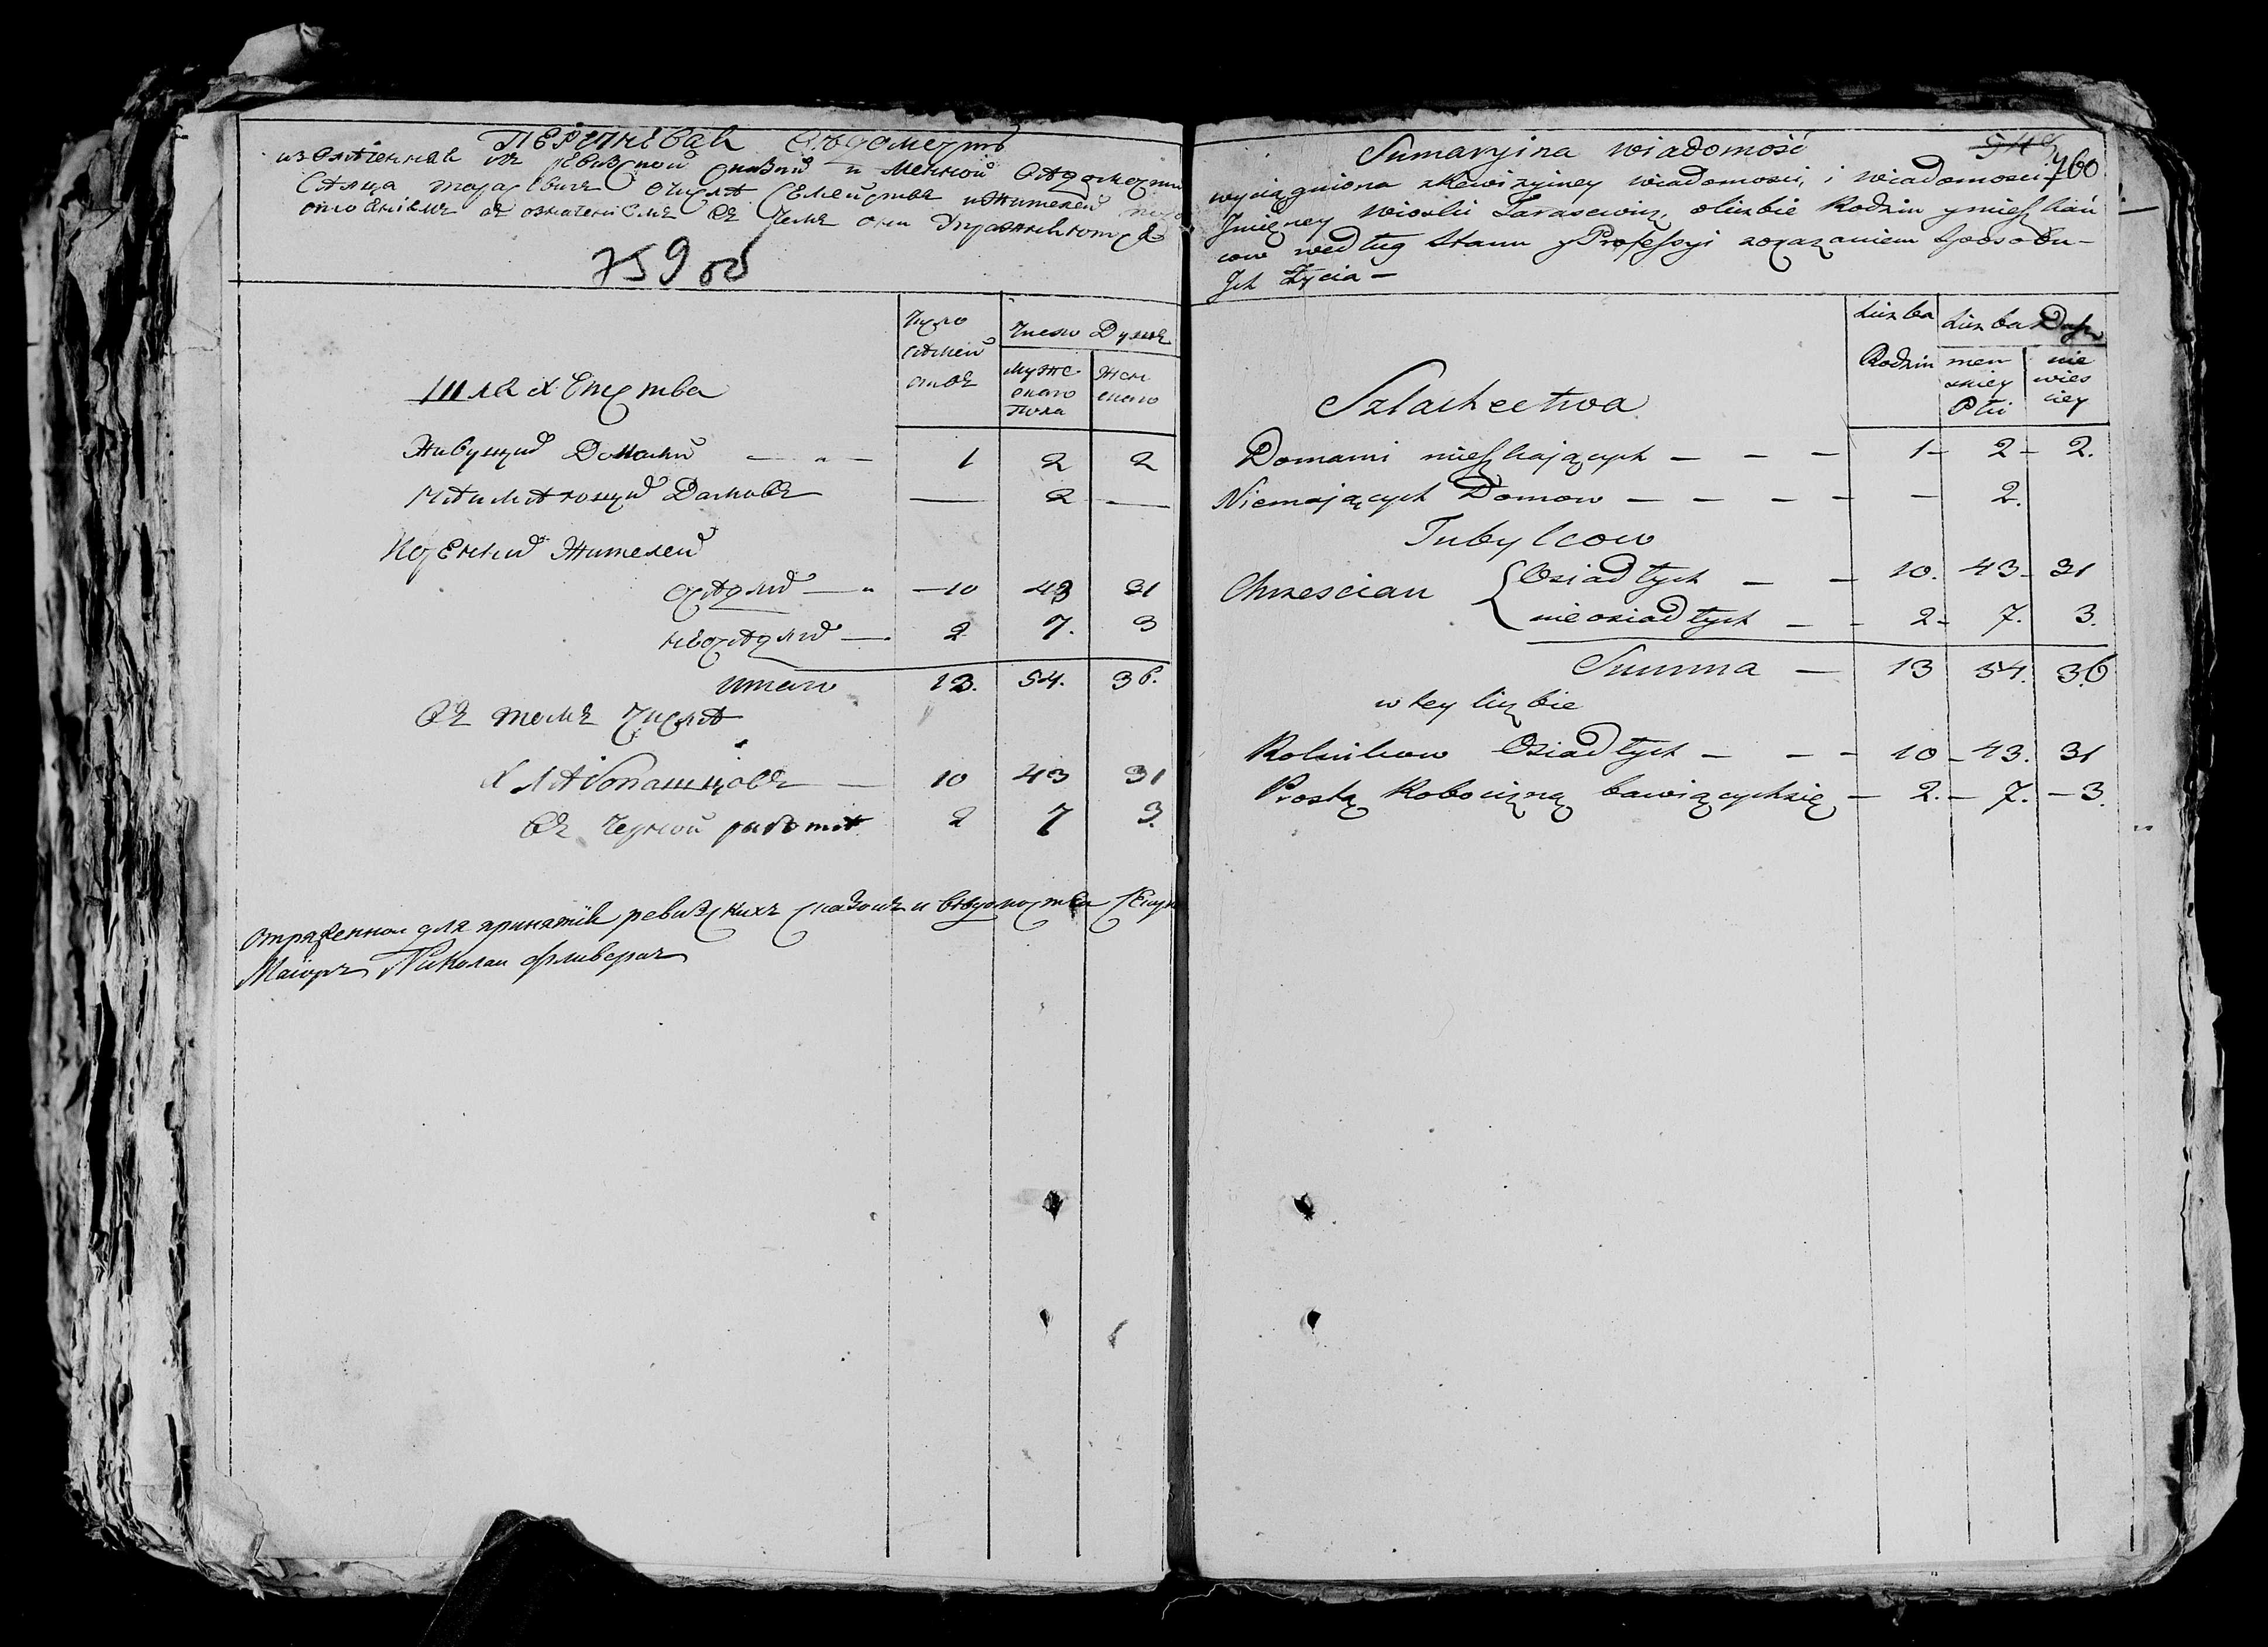 Перечневая Ведомость
извлеченная из ревизской сказки и менной ведомости
Сельца Тарасевич о числе Семейств и жителей
состоянием и означением в чем они упражняются
759 об
Число семейств
Число Душ
мужескаго пола
женскаго
Шляхетства
Живущих Домами — „ — 1 2 2
Неимеющих Домов — 2 —
Коренных Жителей
оседлых — „ — 10 43 31
неоседлых — 2 7. 3
итого 13. 54. 36.
в том числе
Хлебопашцов — 10 43 31
в черной работе 2 7 3.
Отряженной для принятия ревизских сказок и ведомостей Секунд
Маиор Николай
Sumaryina wiadomość
948
760
wyciągniona zRewizyiney wiadomosci, i wiadomosci
Jmięney wioski Tarasewicz, oliczbie Rodzin y mieszkań
cow według Stanu y Professyi zokazaniem Sposobu
Jch Życia —
Liczba Rodzin
Liczba Dusz
men skiey Płci
nie wies ciey
Szlachectwa
Domami mieszkających — — — 1 – 2 – 2.
Niemających Domow — — — — — 2.
Tubylcow
Chrzescian { Osiadłych — — 10. 43 – 31
nieosiadłych — – 2 – 7. 3.
Summa — 13 54. 36
w tey liczbie
Rolnikow Osiadłych — — – 10 – 43. 31
Prostą Robocizną bawiących się — 2. – 7. – 3.